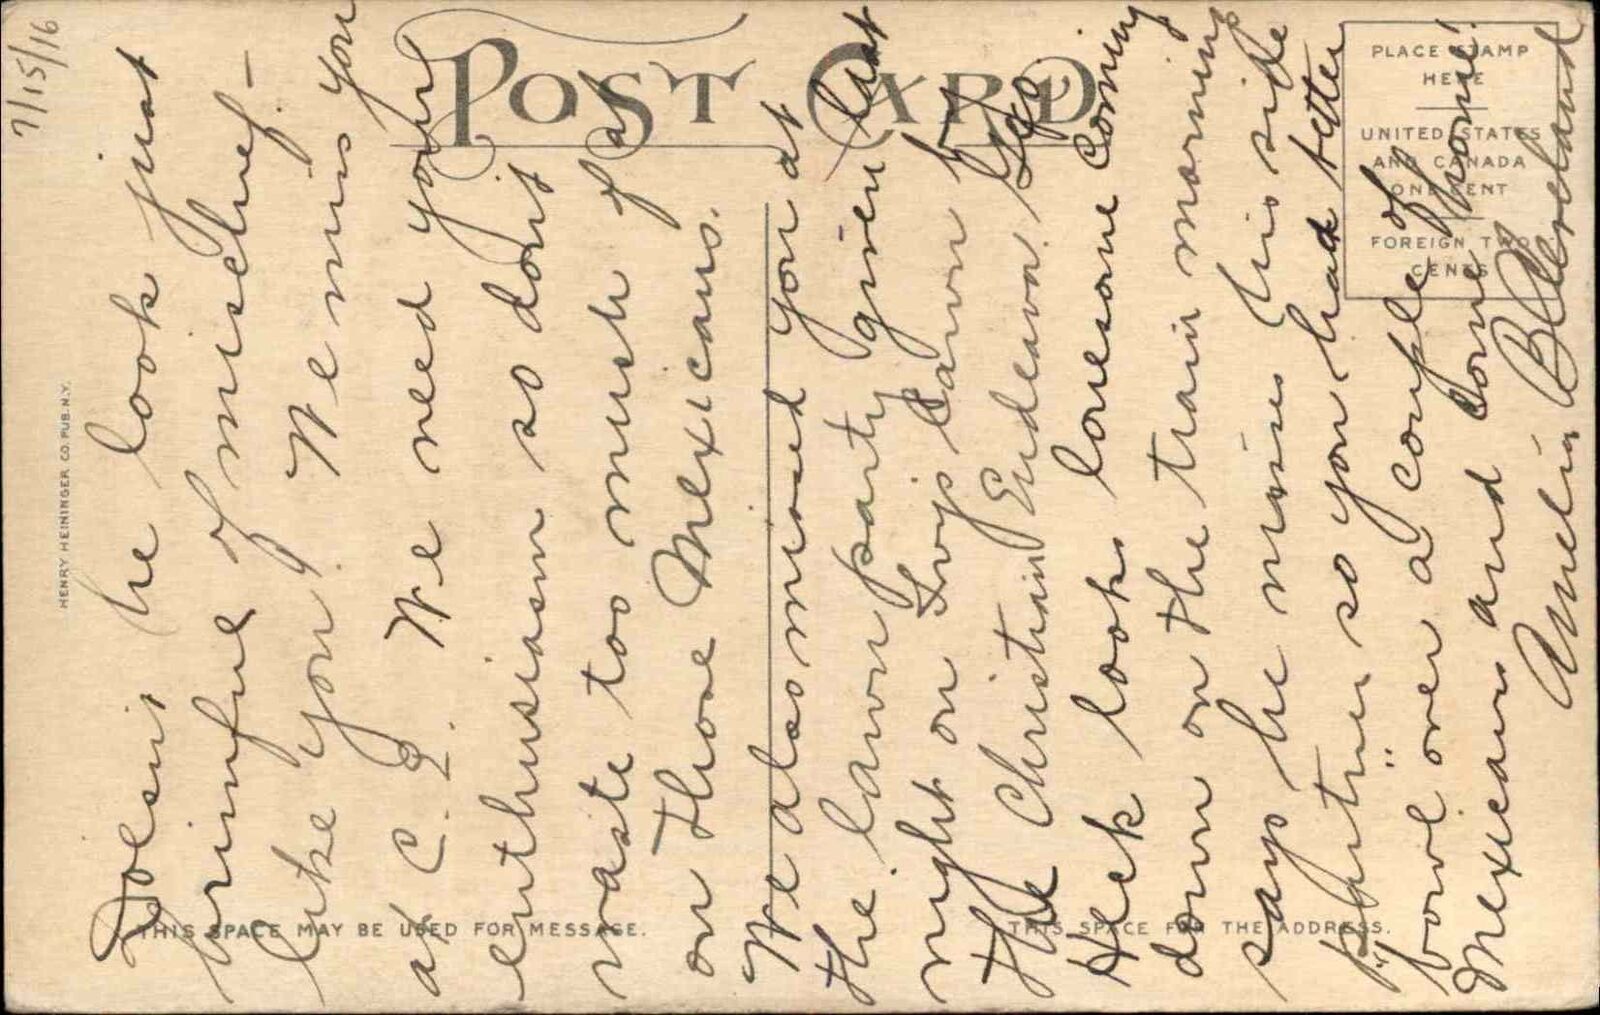 7/15/16
POST CARD
PLACE STAMP
HERE
UNITED STATES
AND CANADA
ONE CENT
FOREIGN TWO
CENTS
HENRY HEININGER CO. PUB. N.Y.
THIS SPACE MAY BE USED FOR MESSAGE.
THIS SPACE FOR THE ADDRESS.
Doesn't he look just
brimful of mischief—
like you? We miss you
at C. E. We need your
enthusiasm so don't
waste too much of it
on those Mexicans.
We also missed you at
the lawn party given last
night on Troys lawn by
the Christian Endeavor.
Heck looks lonesome coming
down on the train morning
says he misses his side
so you had better
"bowl" over a couple of
Mexicans and come home!
Amelia